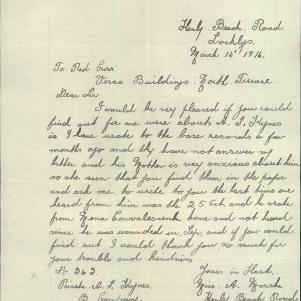 Henly Beach Road
Locklys.
March 14th 1916.
To Red Cross
Verco Buildings. North Terrace
Dear Sir
I would be very pleased if you could
find out for me were abouts A. L. Hynes
is I have wrote to the base records a few
months ago and they have not answer my
letter and his Mother is very anxious about him
so she seen that you find them in the paper
and ask me to write to you the last time we
heard from him was the 25 Oct. and he wrote
from Mena Convalescenk home and not heard
since he was wounded in Sep. and if you could
find out I would thank you so much for
your trouble and kindness
No 363. Yours in Haste.
Private A. L. Hynes. Miss. A.
B Company. Henly Beach Road